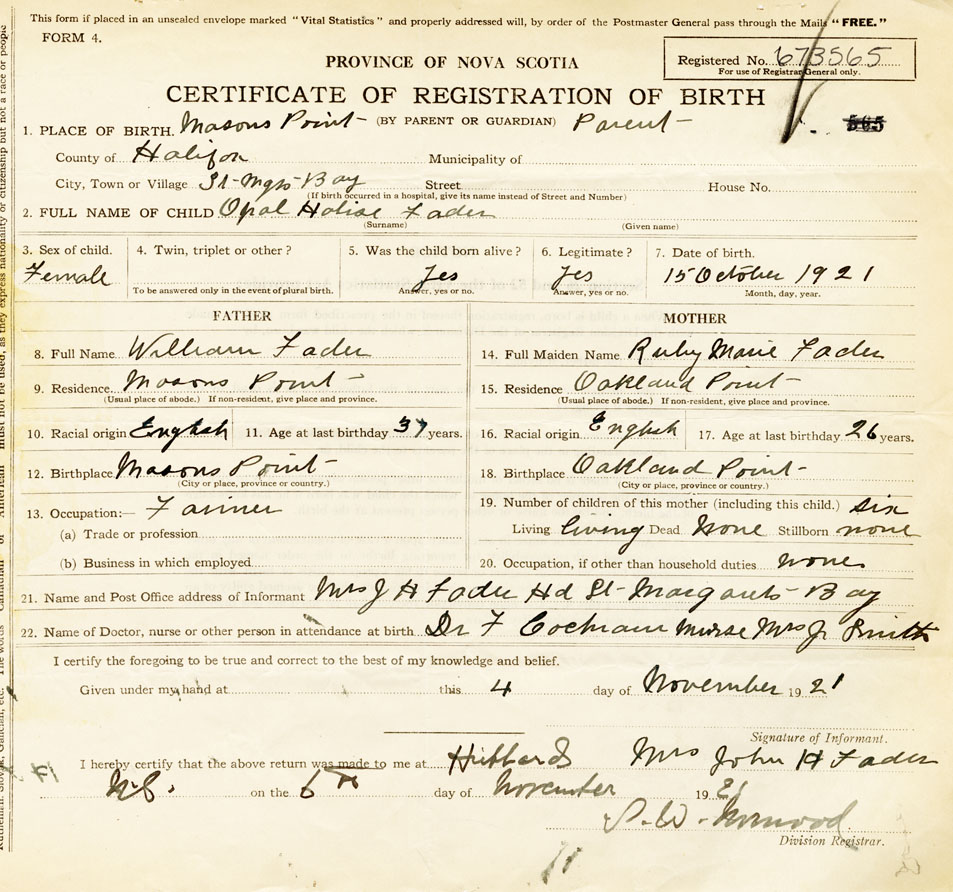 This form if placed in an unsealed envelope marked "Vital Statistics" and properly addressed will, by order of the Postmaster General pass through the Mails "FREE."
FORM 4.
Registered No. 673565
For use of Registrar General only.
PROVINCE OF NOVA SCOTIA
CERTIFICATE OF REGISTRATION OF BIRTH
565
1. PLACE OF BIRTH. Masons Point (BY PARENT OR GUARDIAN) Parent
County of Halifax Municipality of
City, Town or Village St Mgts Bay Street House No.
(If birth occurred in a hospital, give its name instead of Street and Number)
2. FULL NAME OF CHILD Opal Fader
(Surname) (Given name)
3. Sex of child. Female 4. Twin, triplet or other? 5. Was the child born alive? Yes 6. Legitimate? Yes 7. Date of birth. 15 October 1921
To be answered only in the event of plural birth. Answer, yes or no. Answer, yes or no. Month, day, year.
FATHER MOTHER
8. Full Name William Fader 14. Full Maiden Name Ruby Marie Fader
9. Residence Masons Point 15. Residence Oakland Point
(Usual place of abode.) If non-resident, give place and province. (Usual place of abode.) If non-resident, give place and province.
10. Racial origin English 11. Age at last birthday 37 years. 16. Racial origin English 17. Age at last birthday 26 years.
12. Birthplace Masons Point 18. Birthplace Oakland Point
(City or place, province or country.) (City or place, province or country.)
13. Occupation:— Farmer 19. Number of children of this mother (including this child.) six
(a) Trade or profession Living living Dead None Stillborn none
(b) Business in which employed 20. Occupation, if other than household duties none
21. Name and Post Office address of Informant Mrs J H Fader Hd St Margarets Bay
22. Name of Doctor, nurse or other person in attendance at birth Dr F Cochran nurse Mrs J Smith
I certify the foregoing to be true and correct to the best of my knowledge and belief.
Given under my hand at this 4 day of November 1921
Signature of Informant.
I hereby certify that the above return was made to me at Hubbards Mrs John H Fader
N.S. on the 6th day of November 1921
S. W.
Division Registrar.
11